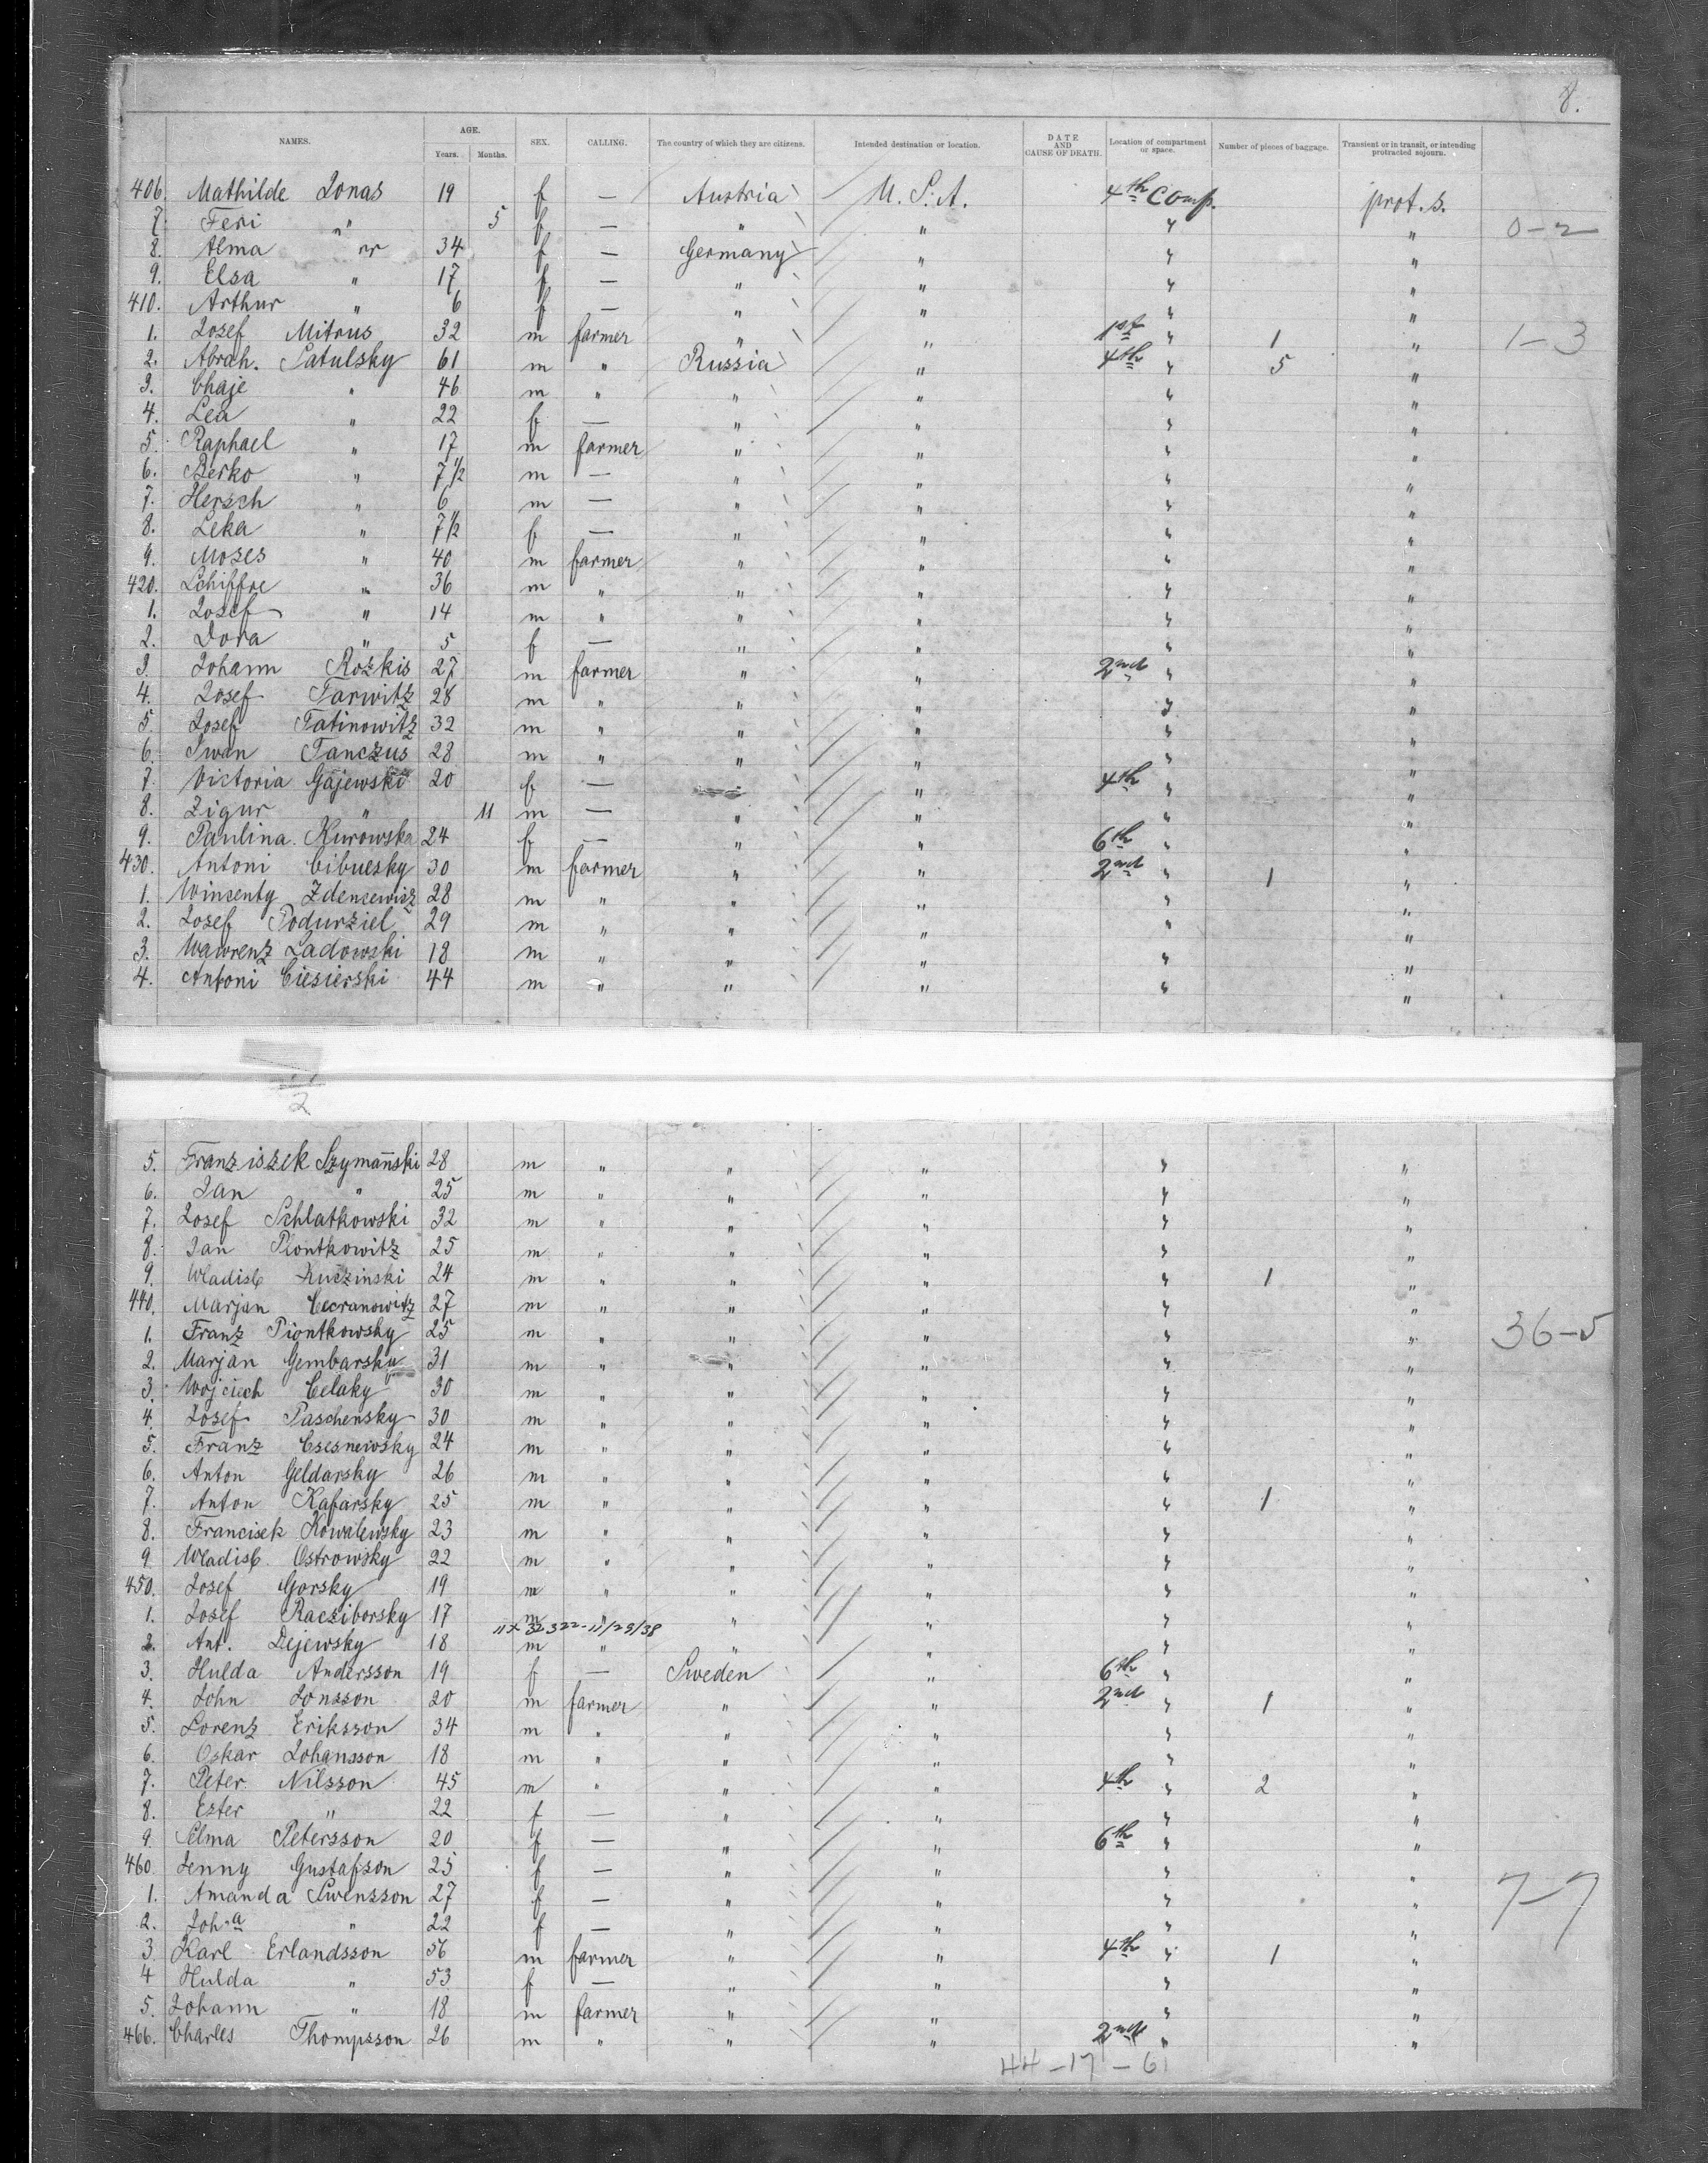 8.
NAMES. AGE. Years. Months. SEX. CALLING. The country of which they are citizens. Intended destination or location. DATE AND CAUSE OF DEATH. Location of compartment or space. Number of pieces of baggage. Transient or in transit, or intending protracted sojourn.
406. Mathilde Jonas 19 f — Austria U. S. A. 4th Comp. prot. s.
7. Feri " 5 f — " " " " 0-2
8. Alma " 34 f — Germany " " "
9. Elsa " 17 f — " " " "
410. Arthur " 6 f — " " " "
1. Josef Mitrus 32 m farmer " " 1st " 1 " 1-3
2. Abrah. Satulsky 61 m " Russia " 4th " 5 "
3. Chaje " 46 m " " " " "
4. Lea " 22 f — " " " "
5. Raphael " 17 m farmer " " " "
6. Berko " 7 1/2 m — " " " "
7. Hersch " 6 m — " " " "
8. Leka " 7 1/2 f — " " " "
9. Moses " 40 m farmer " " " "
420. Schiffre " 36 m " " " " "
1. Josef " 14 m " " " " "
2. Dora " 5 f — " " " "
3. Johann Rozkis 27 m farmer " " 2nd " "
4. Josef Tarwitz 28 m " " " " "
5. Josef Tatinowitz 32 m " " " " "
6. Iwan Tanczus 28 m " " " " "
7. Victoria Gajewski 20 f — " " 4th " "
8. Zigur " 11 m — " " " "
9. Paulina Kurowska 24 f — " " 6th " "
430. Antoni Cibulsky 30 m farmer " " 2nd " 1 "
1. Winsenty Zdencewicz 28 m " " " " "
2. Josef Podurziel 29 m " " " " "
3. Wawrenz Ladowski 18 m " " " " "
4. Antoni Ciesierski 44 m " " " " "
2
5. Franziszek Szymański 28 m " " " " "
6. Jan " 25 m " " " " "
7. Josef Schlatkowski 32 m " " " " "
8. Jan Piontkowitz 25 m " " " " "
9. Wladisl. Kuczinski 24 m " " " " 1 "
440. Marjan Cecranowitz 27 m " " " " "
1. Franz Piontkowsky 25 m " " " " " 36-5
2. Marjan Gembarsky 31 m " " " " "
3. Wojciech Celaky 30 m " " " " "
4. Josef Paschensky 30 m " " " " "
5. Franz Csesnewsky 24 m " " " " "
6. Anton Geldarsky 26 m " " " " "
7. Anton Kafarsky 25 m " " " " 1 "
8. Francisek Kowalewsky 23 m " " " " "
9. Wladisl. Ostrowsky 22 m " " " " "
450. Josef Gorsky 19 m " " " " "
1. Josef Racziborsky 17 m " " " " "
11x 32322-11/29/38
2. Ant. Dejewsky 18 m " " " " "
3. Hulda Andersson 19 f — Sweden " 6th " "
4. John Jonsson 20 m farmer " " 2nd " 1 "
5. Lorenz Eriksson 34 m " " " " "
6. Oskar Johansson 18 m " " " " "
7. Peter Nilsson 45 m " " " 4th " 2 "
8. Ester " 22 f — " " " "
9. Selma Petersson 20 f — " " 6th " "
460. Jenny Gustafson 25 f — " " " "
1. Amanda Swensson 27 f — " " " " 7-7
2. Joh.a " 22 f — " " " "
3. Karl Erlandsson 56 m farmer " " 4th " 1 "
4 Hulda " 53 f — " " " "
5. Johann " 18 m farmer " " " "
466. Charles Thompsson 26 m " " " 2nd " "
44-17-61